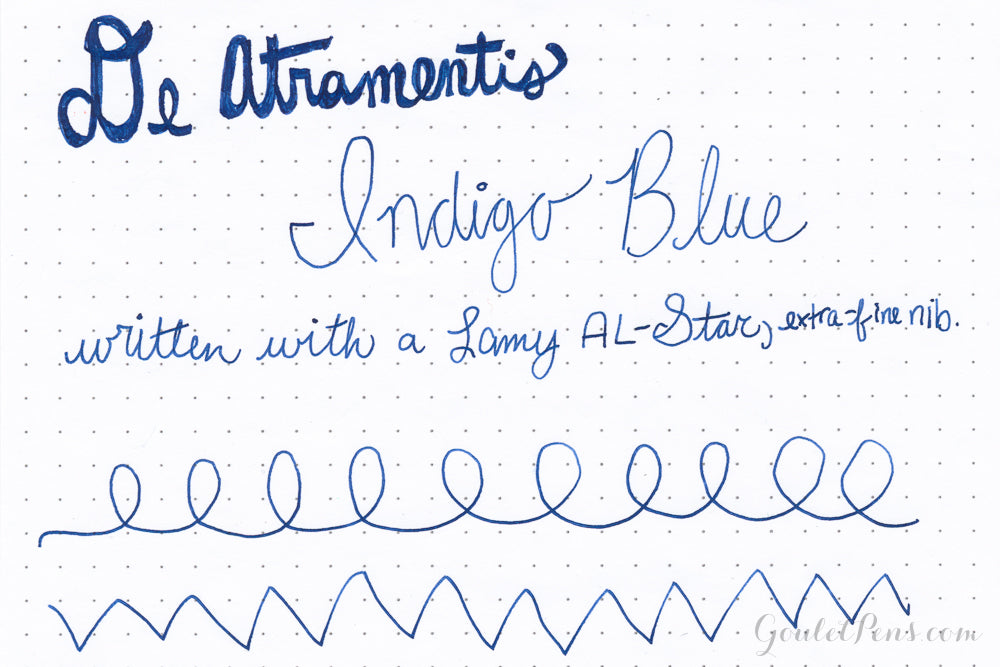 De Atramentis
Indigo Blue
written with a Lamy AL-Star, extra-fine nib.
GouletPens.com